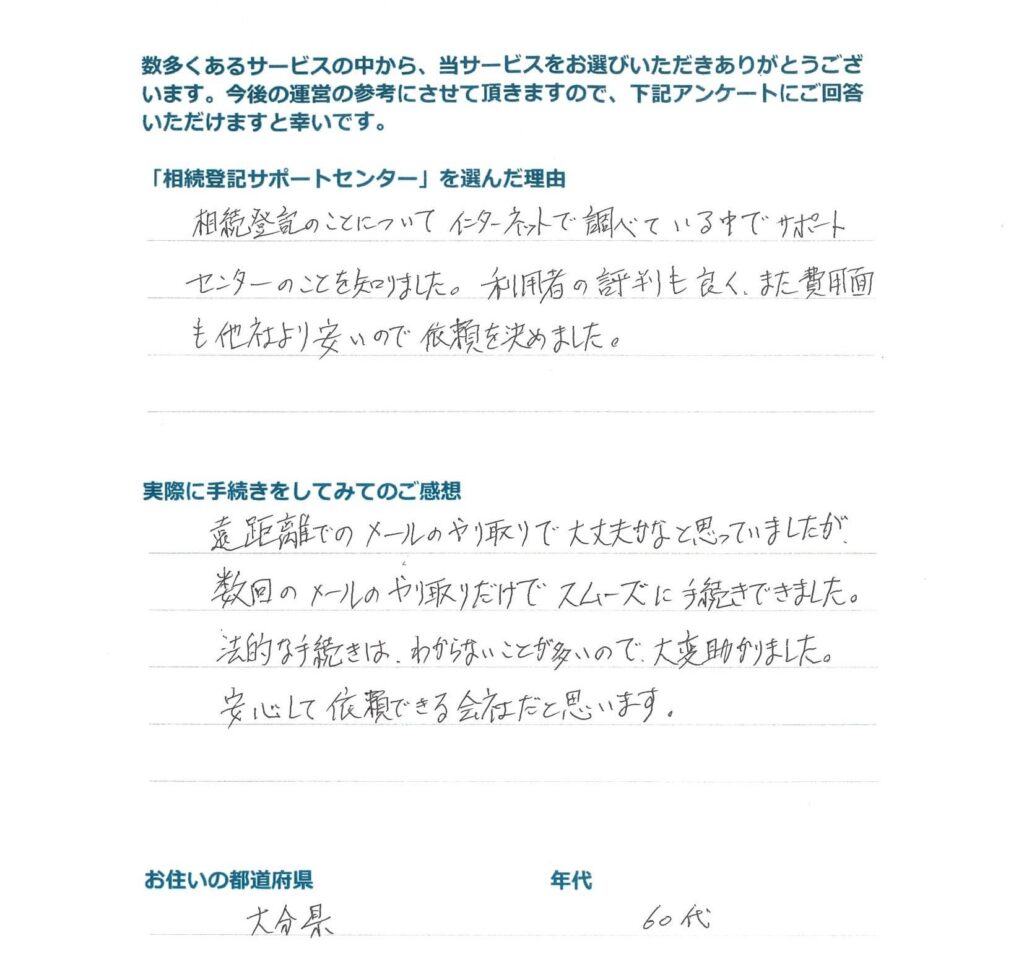 数多くあるサービスの中から、当サービスをお選びいただきありがとうござ
います。今後の運営の参考にさせて頂きますので、下記アンケートにご回答
いただけますと幸いです。
「相続登記サポートセンター」を選んだ理由
相続登記のことについてインターネットで調べている中でサポート
センターのことを知りました。利用者の評判も良く、また費用面
も他社より安いので依頼を決めました。
実際に手続きをしてみてのご感想
遠距離でのメールのやり取りで大丈夫かなと思っていましたが、
数回のメールのやり取りだけでスムーズに手続きできました。
法的な手続きは、わからないことが多いので、大変助かりました。
安心して依頼できる会社だと思います。
お住いの都道府県 年代
大分県 60代